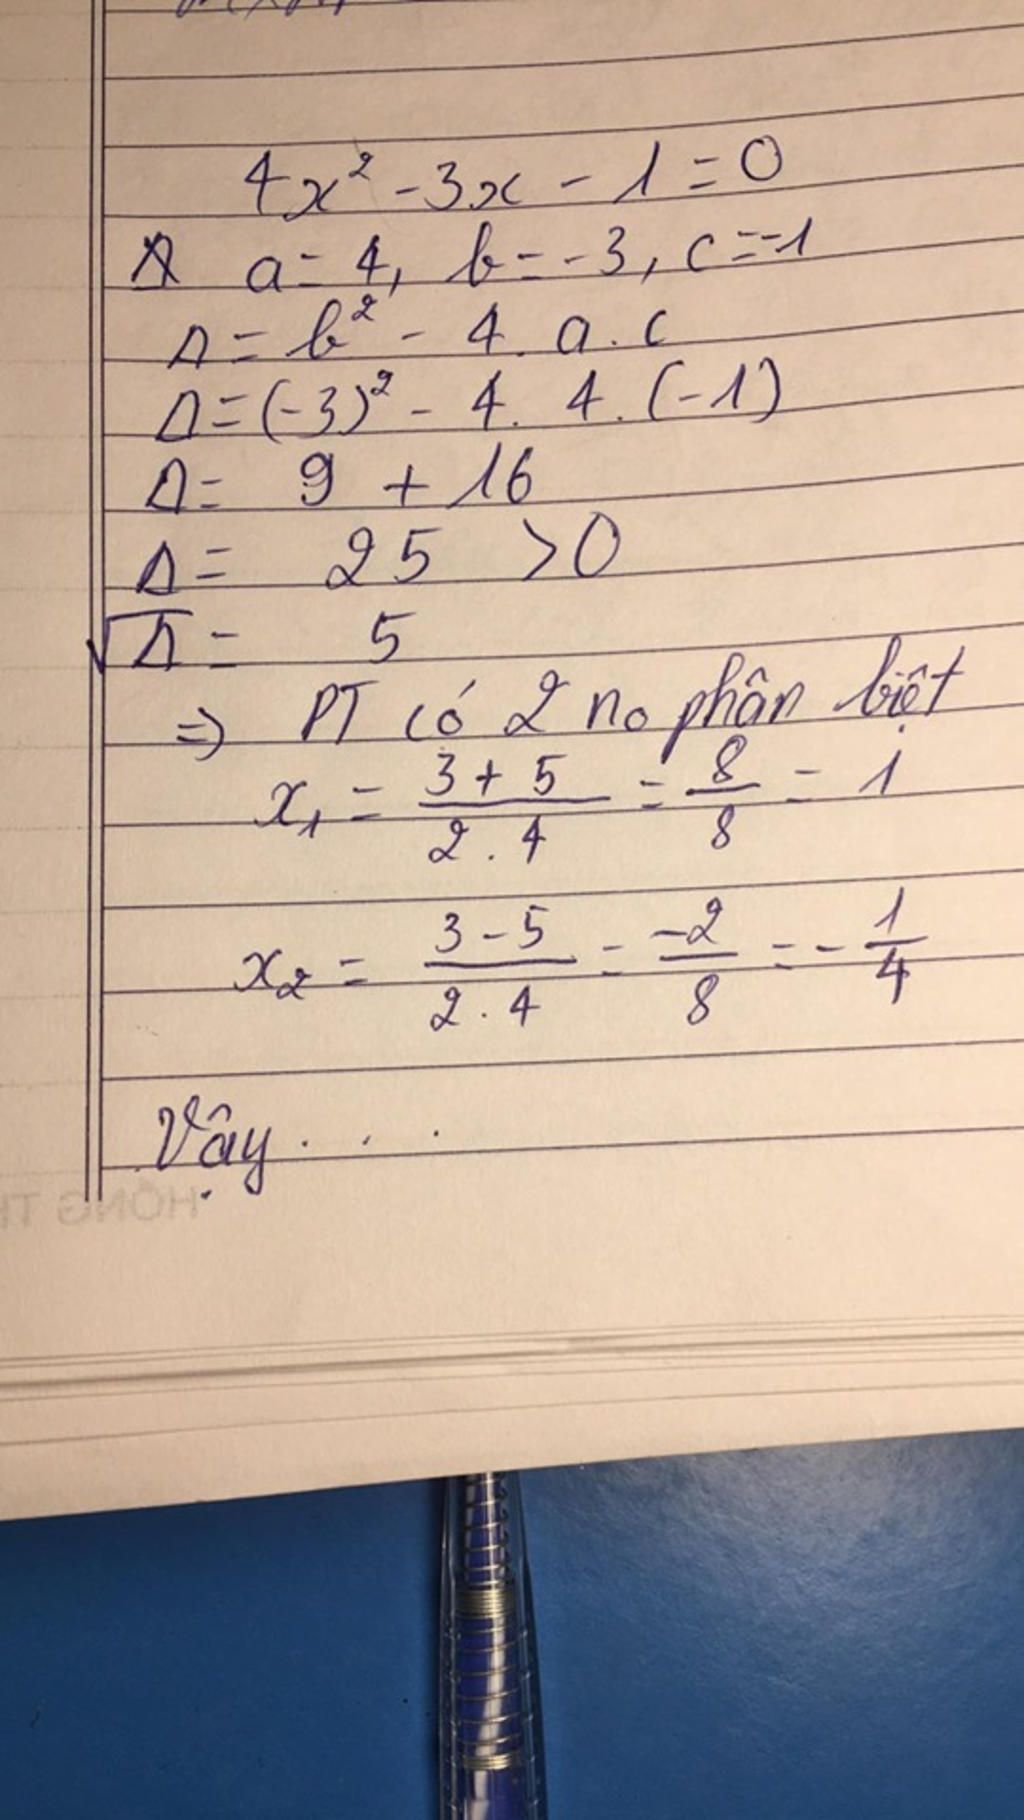 4x² - 3x - 1 = 0
a = 4, b = -3, c = -1
Δ = b² - 4. a. c
Δ = (-3)² - 4. 4. (-1)
Δ = 9 + 16
Δ = 25 > 0
√Δ = 5
=> PT có 2 no phân biệt
x₁ = (3 + 5)/(2 . 4) = 8/8 = 1
x₂ = (3 - 5)/(2 . 4) = -2/8 = - 1/4
Vậy . . .